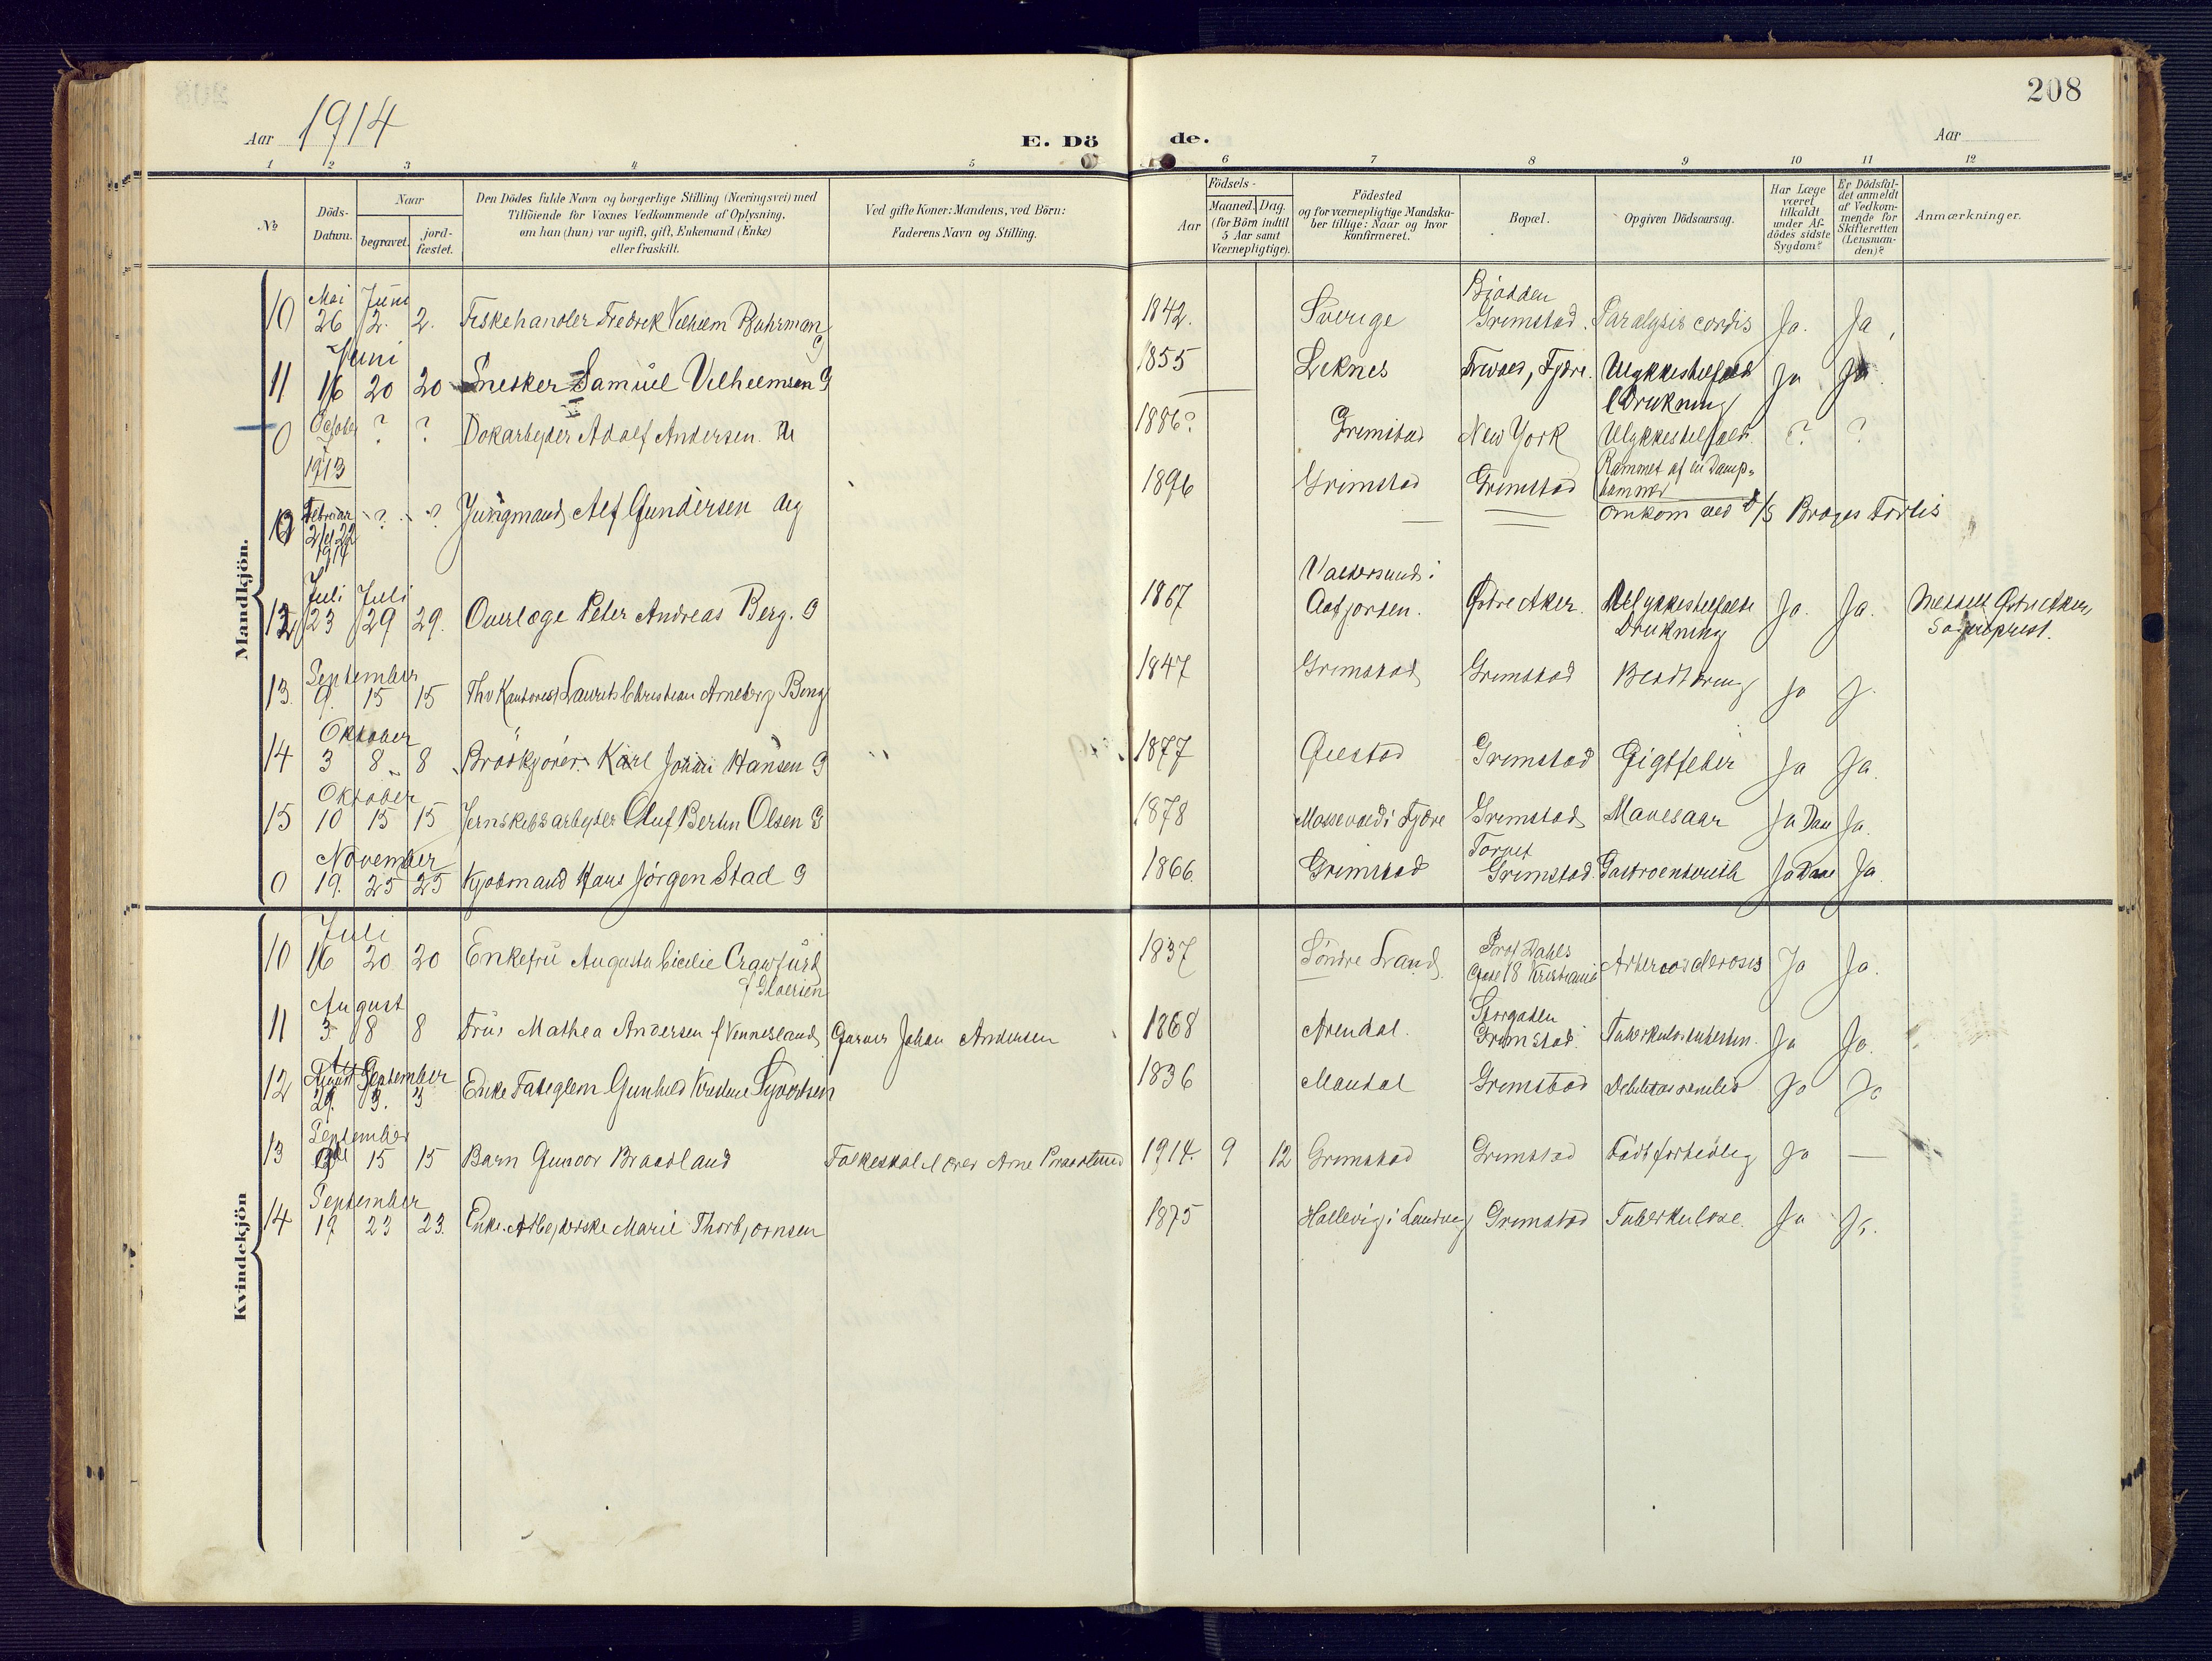 208
Aar 1914
E. Dö
de.
Aar
1 2 3 4 5 6 7 8 9 10 11 12
No
Döds-
Datum.
Naar
begravet.
jord-
fæstet.
Den Dödes fulde Navn og borgerlige Stilling (Næringsvei) med
Tilföiende for Voxnes Vedkommende af Oplysning,
om han (hun) var ugift, gift, Enkemand (Enke)
eller fraskilt.
Ved gifte Koner: Mandens, ved Börn:
Faderens Navn og Stilling.
Aar
Födsels-
Maaned. Dag.
(for Börn indtil
5 Aar samt
Værnepligtige).
Födested
og for værnepligtige Mandska-
ber tillige: Naar og hvor
konfirmeret.
Bopæl.
Opgiven Dödsaarsag.
Har Læge
været
tilkaldt
under Af-
dödes sidste
Sygdom?
Er Dödsfal-
det anmeldt
af Vedkom-
mende for
Skifteretten
(Lensman-
den)?
Anmærkninger.
Mandkjön.
Mai Juni
10 26 2. 2. Fiskehandler Fredrik Vilhelm Buhrman G 1842. Sverige Grimstad. Paralysis cordis Ja. Ja
Juni
11 16 20 20 Snekker Samuel Vilhelmsen G 1855 Leknes Fjære. Ulykkestilfælde Ja Ja.
Drukning
October
0 7 ? ? Dokarbeider Adolf Andersen U 1886? Grimstad New York Ulykkestilfælde. ? ?
1913
Rammet af en Damp-
hammer
Februar
21 el 22 ? ? Jungmand Alf Gundersen Ug 1896 Grimstad Grimstad Omkom ved D/S Brages Forlis
1914
Juli Juli
12 23 29 29. Overlæge Peter Andreas Berg. G 1867 Valdersund i
Aafjorden. Østre Aker. Ulykkestilfælde Ja. Ja. Meldt Østre Aker,
Drukning Sogneprest.
September
13. 9. 15 15 Laurits Christian Arneberg Berg 1847 Grimstad Grimstad Ja J.
Oktober
14 3 8 8 Karl Johan Hansen G 1877 Grimstad Gigtfeber Ja Ja.
Oktober
15 10 15 15 Jernskibsarbeider Oluf Bertin Olsen G 1878 Fjære Grimstad Mavesaar Ja Ja.
November
0 19. 25 25 Kjøbmand Hans Jørgen Stad G 1866. Grimstad Torvet
Grimstad. Gastroenterith Ja Ja.
Kvindekjön
Juli
10 16 20 20 Enkefru Augusta Cicilie Crawfurd
f 1837 Søndre Land. Prof Dahls
Gade 18 Kristiania Ja Ja.
August
11 3. 8 8 Fru Mathea Andersen f Vennesland Garver Johan Andersen 1868 Arendal. Storgaden
Grimstad. Ja Ja.
August September
12 29. 3. 3 Enke Gunhild Syvertsen 1836 Mandal Grimstad Debilitas senilis Ja Ja
September
13 15 15 Barn Gunvor Braadland Folkeskolelærer Arne Braadland 1914. 9 12 Grimstad Grimstad Født fortidlig Ja —
September
14 19 23 23. Enke. Arbeiderske Marie Thorbjørnsen 1875 Hallevig i Landvig Grimstad Tuberkulose. Ja Ja.